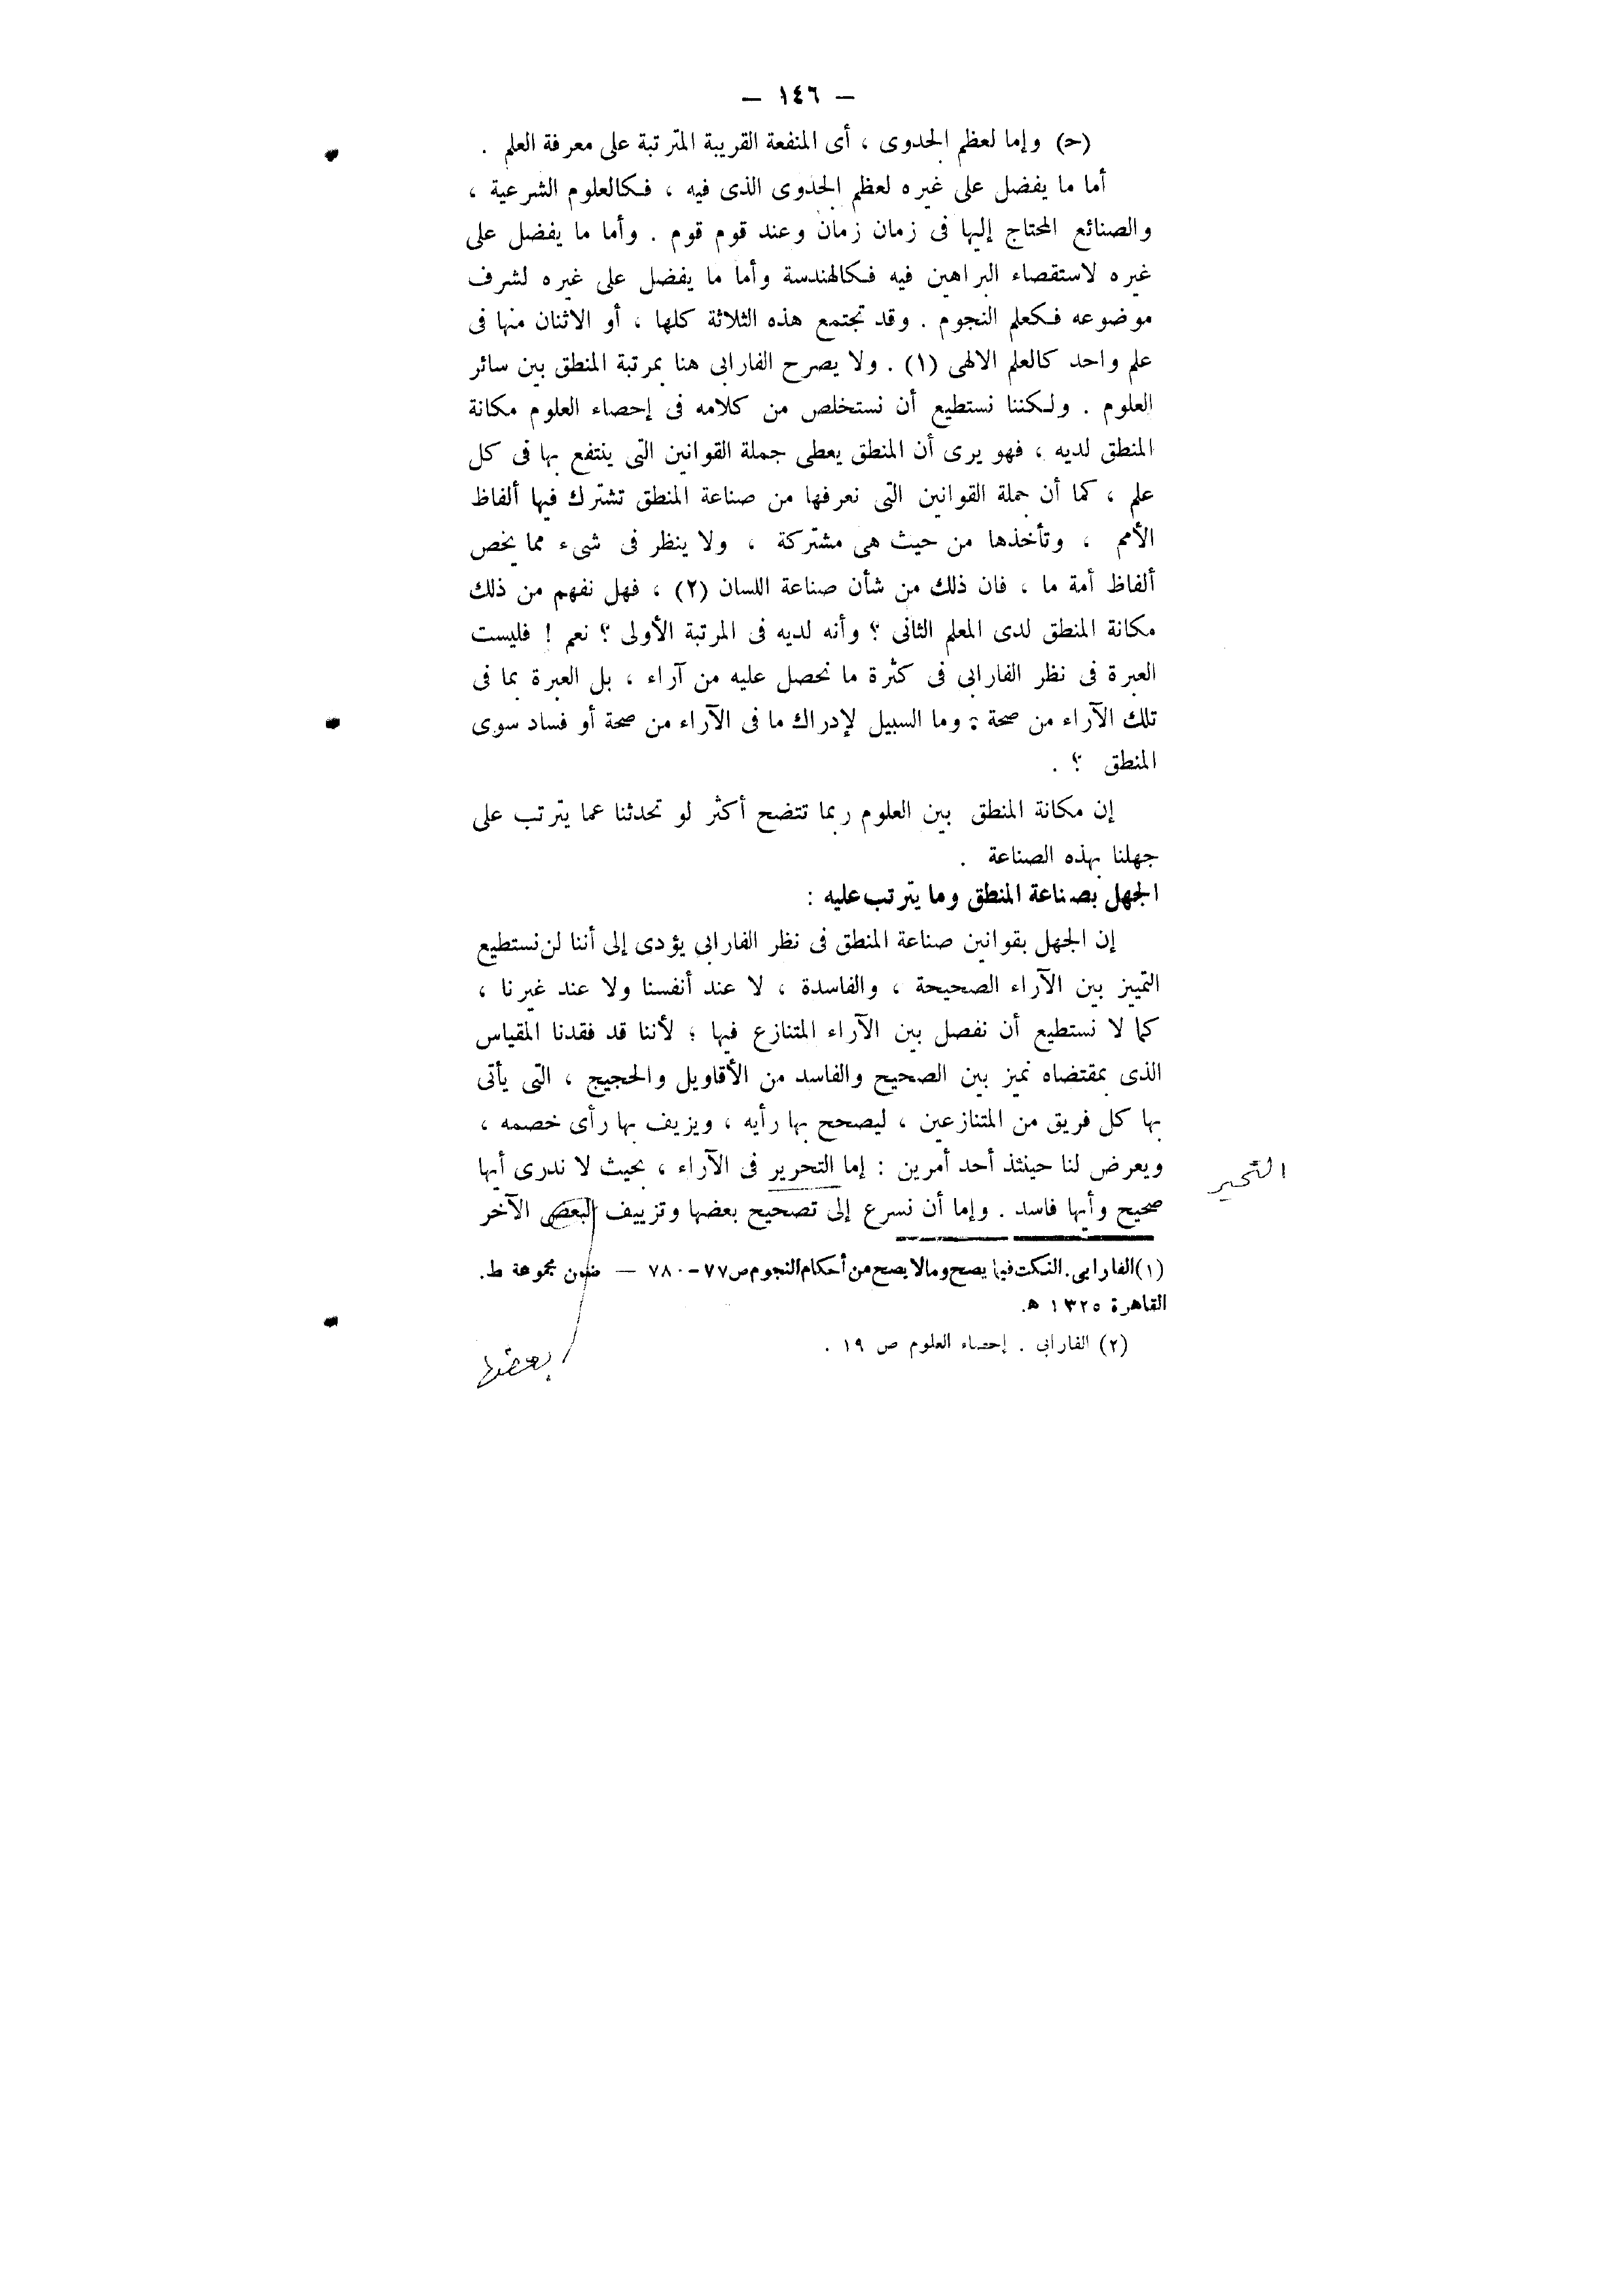 — ١٤٦ —
(ح) وإما لعظم الجدوى ، أى المنفعة القريبة المترتبة على معرفة العلم .
أما ما يفضل على غيره لعظم الجدوى الذى فيه ، فكالعلوم الشرعية ،
والصنائع المحتاج إليها فى زمان زمان وعند قوم قوم . وأما ما يفضل على
غيره لاستقصاء البراهين فيه فكالهندسة وأما ما يفضل على غيره لشرف
موضوعه فكعلم النجوم . وقد تجتمع هذه الثلاثة كلها ، أو الاثنان منها فى
علم واحد كالعلم الالهى (١) . ولا يصرح الفارابى هنا بمرتبة المنطق بين سائر
العلوم . ولكننا نستطيع أن نستخلص من كلامه فى إحصاء العلوم مكانة
المنطق لديه ، فهو يرى أن المنطق يعطى جملة القوانين التى ينتفع بها فى كل
علم ، كما أن جملة القوانين التى نعرفها من صناعة المنطق تشترك فيها ألفاظ
الأمم ، وتأخذها من حيث هى مشتركة ، ولا ينظر فى شىء مما يخص
ألفاظ أمة ما ، فان ذلك من شأن صناعة اللسان (٢) ، فهل نفهم من ذلك
مكانة المنطق لدى المعلم الثانى ؟ وأنه لديه فى المرتبة الأولى ؟ نعم ! فليست
العبرة فى نظر الفارابى فى كثرة ما نحصل عليه من آراء ، بل العبرة بما فى
تلك الآراء من صحة ; وما السبيل لإدراك ما فى الآراء من صحة أو فساد سوى
المنطق ؟ .
إن مكانة المنطق بين العلوم ربما تتضح أكثر لو تحدثنا عما يترتب على
جهلنا بهذه الصناعة .
الجهل بصناعة المنطق وما يترتب عليه :
إن الجهل بقوانين صناعة المنطق فى نظر الفارابى يؤدى إلى أننا لن نستطيع
التمييز بين الآراء الصحيحة ، والفاسدة ، لا عند أنفسنا ولا عند غيرنا ،
كما لا نستطيع أن نفصل بين الآراء المتنازع فيها ؛ لأننا قد فقدنا المقياس
الذى بمقتضاه نميز بين الصحيح والفاسد من الأقاويل والحجيج ، التى يأتى
بها كل فريق من المتنازعين ، ليصحح بها رأيه ، ويزيف بها رأى خصمه ،
ويعرض لنا حينئذ أحد أمرين : إما التحرير فى الآراء ، بحيث لا ندرى أيها
التحير
صحيح وأيها فاسد . وإما أن نسرع إلى تصحيح بعضها وتزييف البعض الآخر
(١) الفارابى . النكت فيما يصح وما لا يصح من أحكام النجوم ص ٧٧-٧٨٠ — ضمن مجموعة ط.
القاهرة ١٣٢٥ ه.
(٢) الفارابى . إحصاء العلوم ص ١٩ .
بعضها